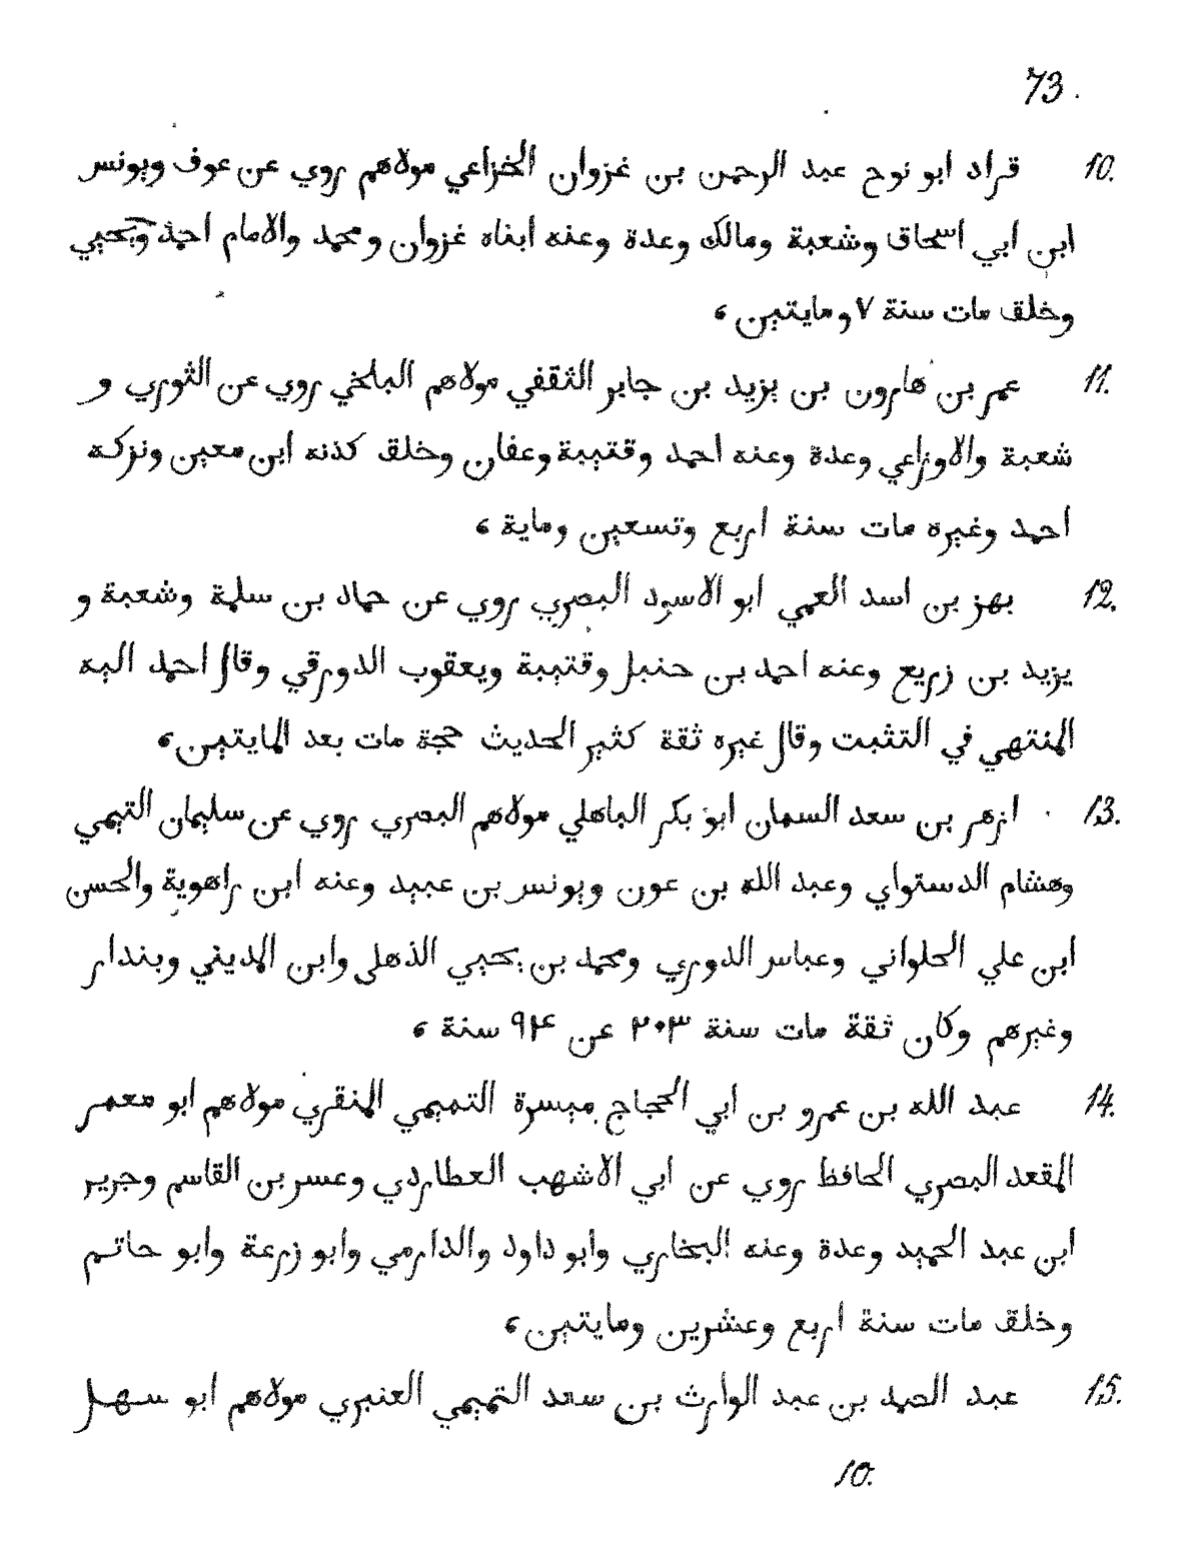 73.
10. قراد ابو نوح عبد الرحمن بن غزوان الخزاعي مولاهم روي عن عوف ويونس
ابن ابي اسحاق وشعبة ومالك وعدة وعنه ابناه غزوان ومحمد والامام احمد ويحيي
وخلق مات سنة ٧ ومايتين ،
11. عمر بن هارون بن يزيد بن جابر الثقفي مولاهم البلخي روي عن الثوري و
شعبة والاوزاعي وعدة وعنه احمد وقتيبة وعفان وخلق كذنه ابن معين ونزكه
احمد وغيره مات سنة اربع وتسعين وماية ،
12. بهز بن اسد العمي ابو الاسود البصري روي عن حماد بن سلمة وشعبة و
يزيد بن زريع وعنه احمد بن حنبل وقتيبة ويعقوب الدورقي وقال احمد اليه
المنتهي في التثبت وقال غيره ثقة كثير الحديث حجة مات بعد المايتين ،
13. ازهر بن سعد السمان ابو بكر الباهلي مولاهم البصري روي عن سليمان التيمي
وهشام الدستواي وعبد الله بن عون ويونس بن عبيد وعنه ابن راهوية والحسن
ابن علي الحلواني وعباس الدوري ومحمد بن يحيي الذهلي وابن المديني وبندار
وغيرهم وكان ثقة مات سنة ٢٠٣ عن ٩٤ سنة ،
14. عبد الله بن عمرو بن ابي الحجاج ميسرة التميمي المنقري مولاهم ابو معمر
المقعد البصري الحافظ روي عن ابي الاشهب العطاردي وعسر بن القاسم وجرير
ابن عبد الحميد وعدة وعنه البخاري وابو داود والدارمي وابو زرعة وابو حاتم
وخلق مات سنة اربع وعشرين ومايتين ،
15. عبد الصمد بن عبد الوارث بن سعد التميمي العنبري مولاهم ابو سهل
10.